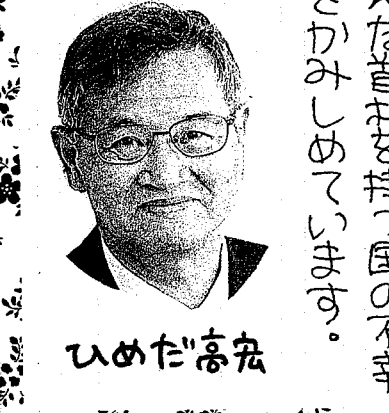 た首相を持つ国の不幸
をかみしめています。
ひめだ高宏